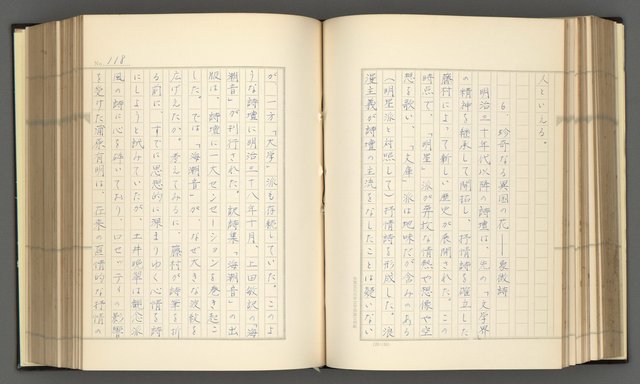 人といえる。
6. 珍奇なる異国の花──象徴詩
明治三十年代以降の詩壇は、先の「文学界」
の精神を継承して開拓し、抒情詩を確立した
藤村によって新しい歴史が展開された。この
時点で、「明星」派が奔放な情熱や想像や空
想を歌い、「文庫」派は地味だが含みのある
(明星派と対照して)抒情詩を形成した。浪
漫主義が詩壇の主流をなしたことは疑いない
No. 118
が、一方「大学」派も存続していた。このよ
うな詩壇に明治三十八年十月、上田敏訳の「海
潮音」が刊行された。訳詩集「海潮音」の出
版は、詩壇に一大センセーションを巻き起こ
した。では「海潮音」が、なぜ大きな波紋を
広げたのか。考えてみるに、藤村が詩筆を折
る前に、すでに思想的に深まりゆく心情を詩
にしようと試みていたが、土井晩翠は観念派
風の詩に心を砕いており、ロセッティの影響
を受けた蒲原有明は、在来の直情的な抒情の